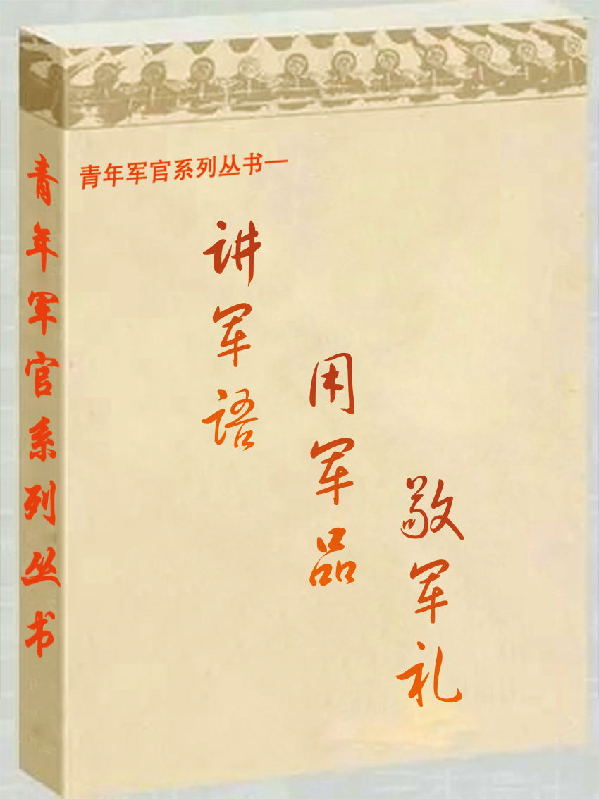 青年军官系列丛书
青年军官系列丛书一
讲军语
用军品
敬军礼